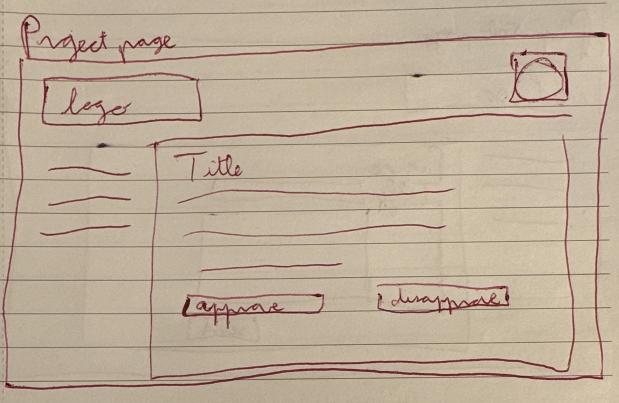 Project page
logo
Title
approve
disapprove